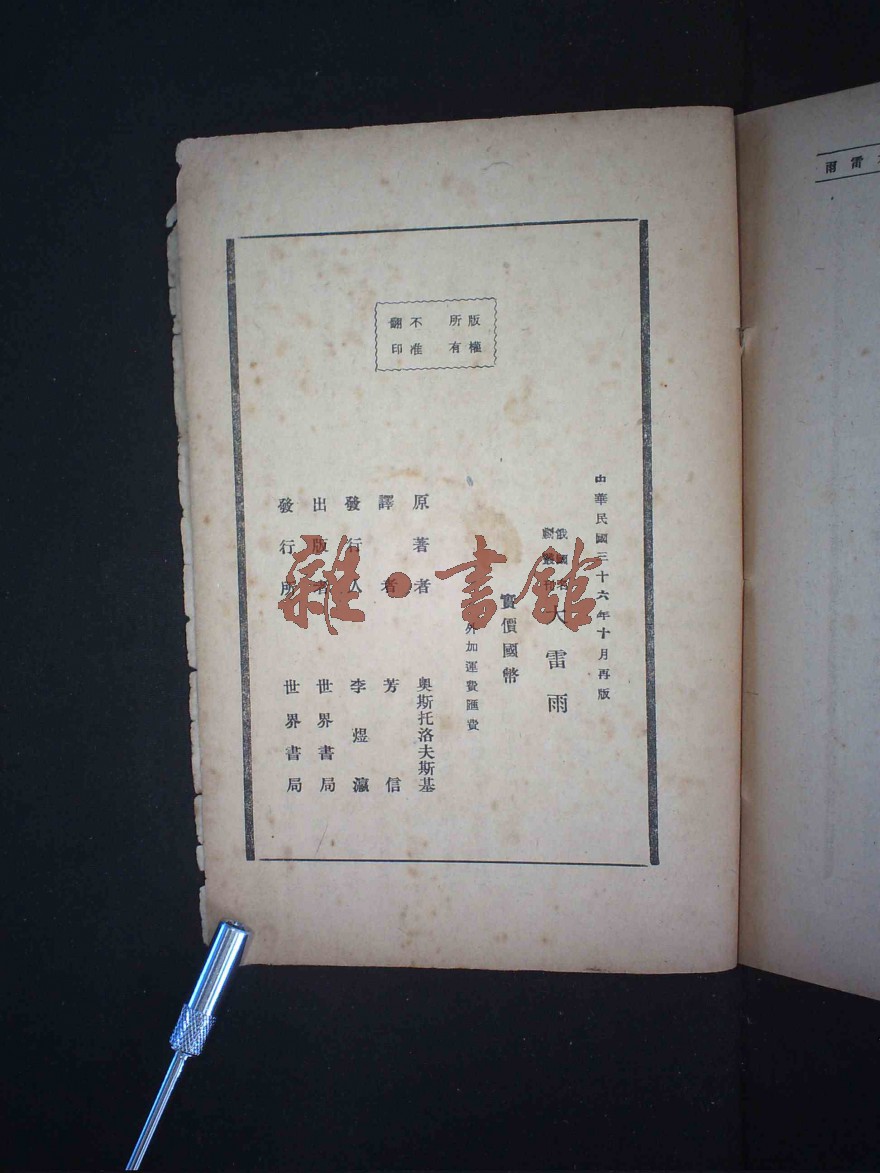 版權
所有
不准
翻印
中華民國三十六年十月再版
俄國名
劇叢刊
大雷雨
實價國幣
外加運費匯費
原著者 奧斯托洛夫斯基
譯者 芳信
發行人 李煜瀛
出版者 世界書局
發行所 世界書局
雜·書館
雷雨